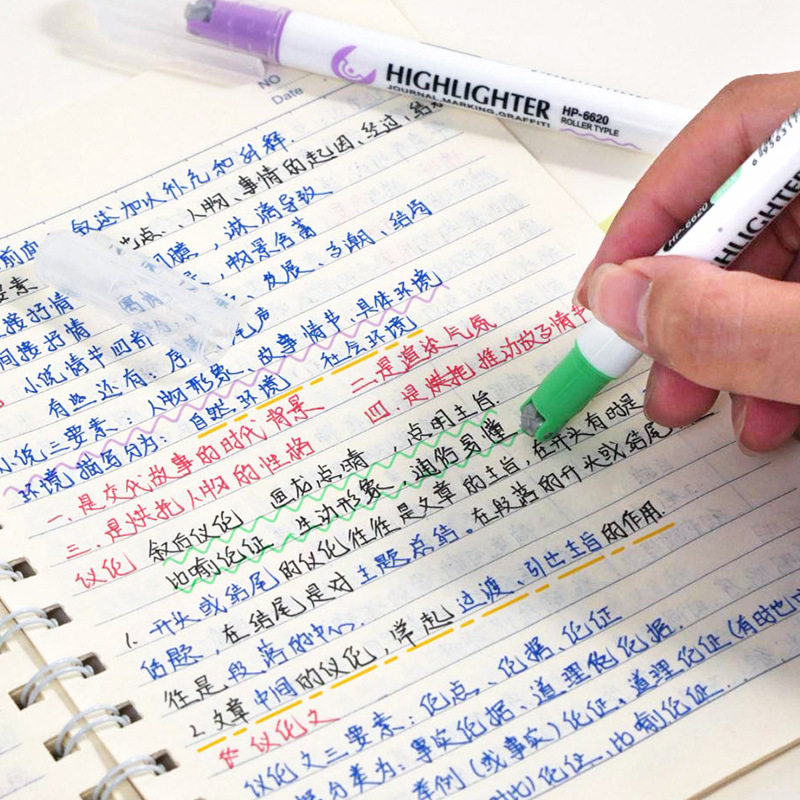 HIGHLIGHTER
JOURNAL.MARKING.GRAFFITI
HP-6620
ROLLER TYPLE
NO
Date
叙述加以补充和解释.
人物、事情的起因、经过、结
淋漓导致
发展、高潮、结局
接抒情
间接抒情
小说情节四
有些还有:序
小说三要素:人物形象、故事情节、具体环境
环境描写分为:自然环境 社会环境
一.是交代故事的时代背景 二是渲染气氛
三.是烘托人物的性格 四.是烘托推动故事情节
议论 叙后议论 画龙点睛,点明主旨.
比喻论证,生动形象,通俗易懂
1.开头或结尾的议论往往是文章的主旨,在开头有的是
话题,在结尾是对主题总结,在段落的开头或结尾
往是段落的中心.
2.文章中间的议论,常起过渡、引出主旨的作用.
议论文
议论文三要素:论点、论据、论证
分类为:事实论据、道理论据.
举例(或事实)论证、道理论证(有时也
论证、比喻论证..
HP-6620
HIGHLIGHTER